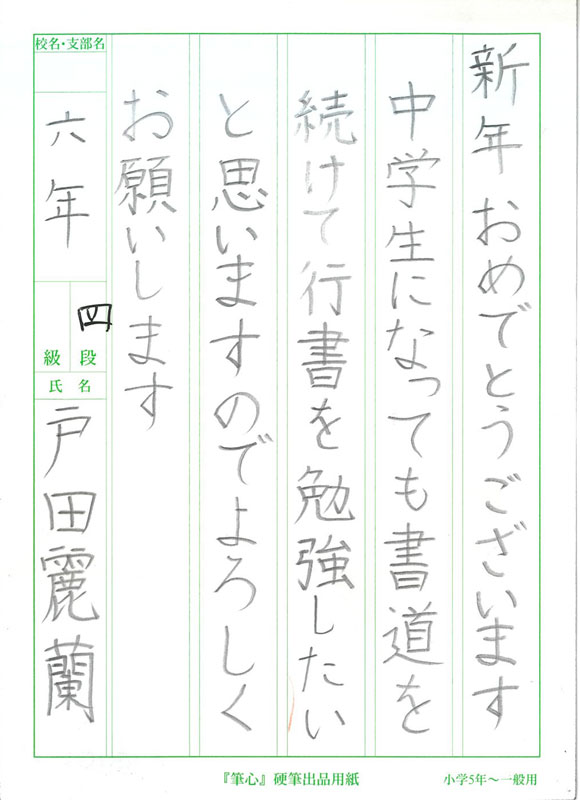 新年おめでとうございます
中学生になっても書道を
続けて行書を勉強したい
と思いますのでよろしく
お願いします
校名・支部名
六年
四段
級
氏名
戸田麗蘭
『筆心』硬筆出品用紙
小学5年～一般用